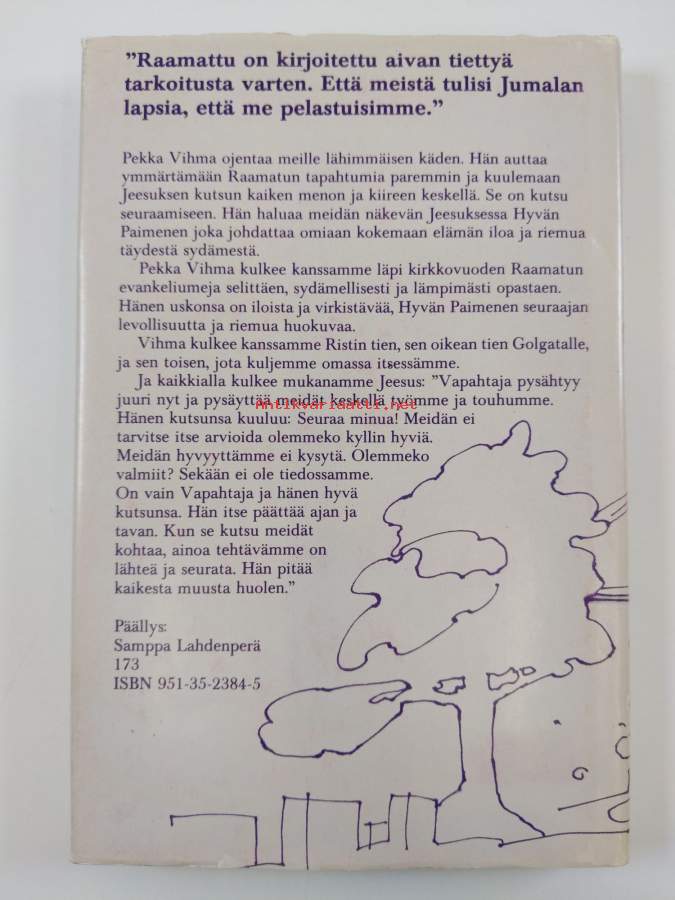 ”Raamattu on kirjoitettu aivan tiettyä
tarkoitusta varten. Että meistä tulisi Jumalan
lapsia, että me pelastuisimme.”
Pekka Vihma ojentaa meille lähimmäisen käden. Hän auttaa
ymmärtämään Raamatun tapahtumia paremmin ja kuulemaan
Jeesuksen kutsun kaiken menon ja kiireen keskellä. Se on kutsu
seuraamiseen. Hän haluaa meidän näkevän Jeesuksessa Hyvän
Paimenen joka johdattaa omiaan kokemaan elämän iloa ja riemua
täydestä sydämestä.
Pekka Vihma kulkee kanssamme läpi kirkkovuoden Raamatun
evankeliumeja selittäen, sydämellisesti ja lämpimästi opastaen.
Hänen uskonsa on iloista ja virkistävää, Hyvän Paimenen seuraajan
levollisuutta ja riemua huokuvaa.
Vihma kulkee kanssamme Ristin tien, sen oikean tien Golgatalle,
ja sen toisen, jota kuljemme omassa itsessämme.
Ja kaikkialla kulkee mukanamme Jeesus: ”Vapahtaja pysähtyy
juuri nyt ja pysäyttää meidät keskellä työmme ja touhumme.
Antikvariaatti.net
Hänen kutsunsa kuuluu: Seuraa minua! Meidän ei
tarvitse itse arvioida olemmeko kyllin hyviä.
Meidän hyvyyttämme ei kysytä. Olemmeko
valmiit? Sekään ei ole tiedossamme.
On vain Vapahtaja ja hänen hyvä
kutsunsa. Hän itse päättää ajan ja
tavan. Kun se kutsu meidät
kohtaa, ainoa tehtävämme on
lähteä ja seurata. Hän pitää
kaikesta muusta huolen.”
Päällys:
Samppa Lahdenperä
173
ISBN 951-35-2384-5